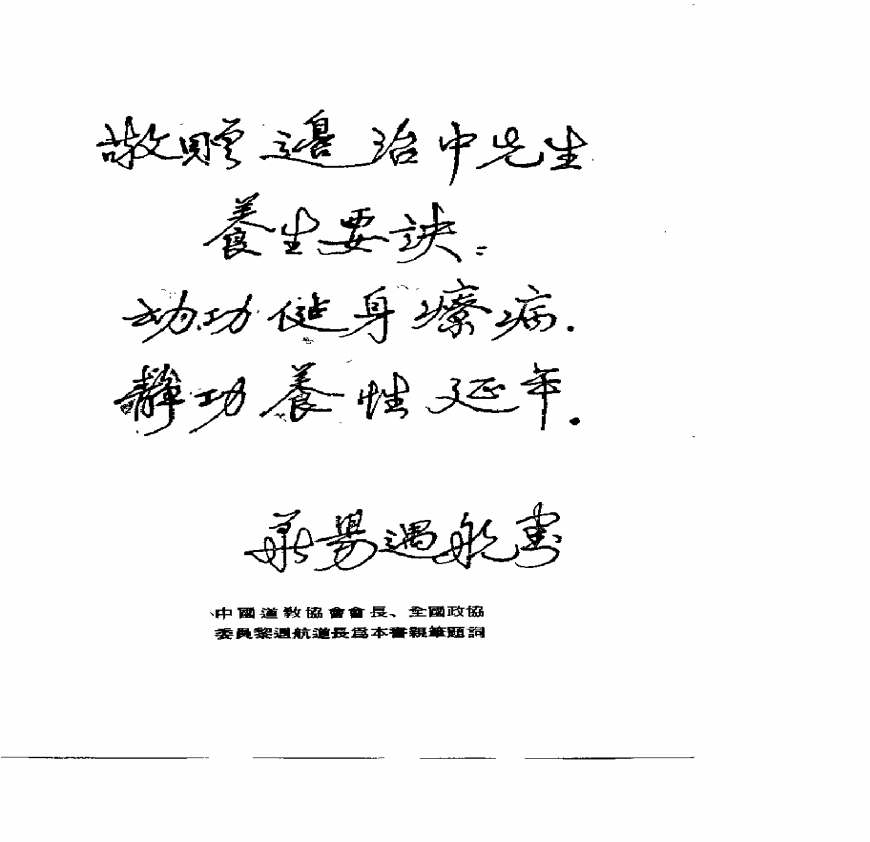 敬贈邊治中先生
養生要訣：
动功健身療病.
靜功養性延年.
遇航書
中國道教協會會長、全國政協
委員黎遇航道長爲本書親筆題詞